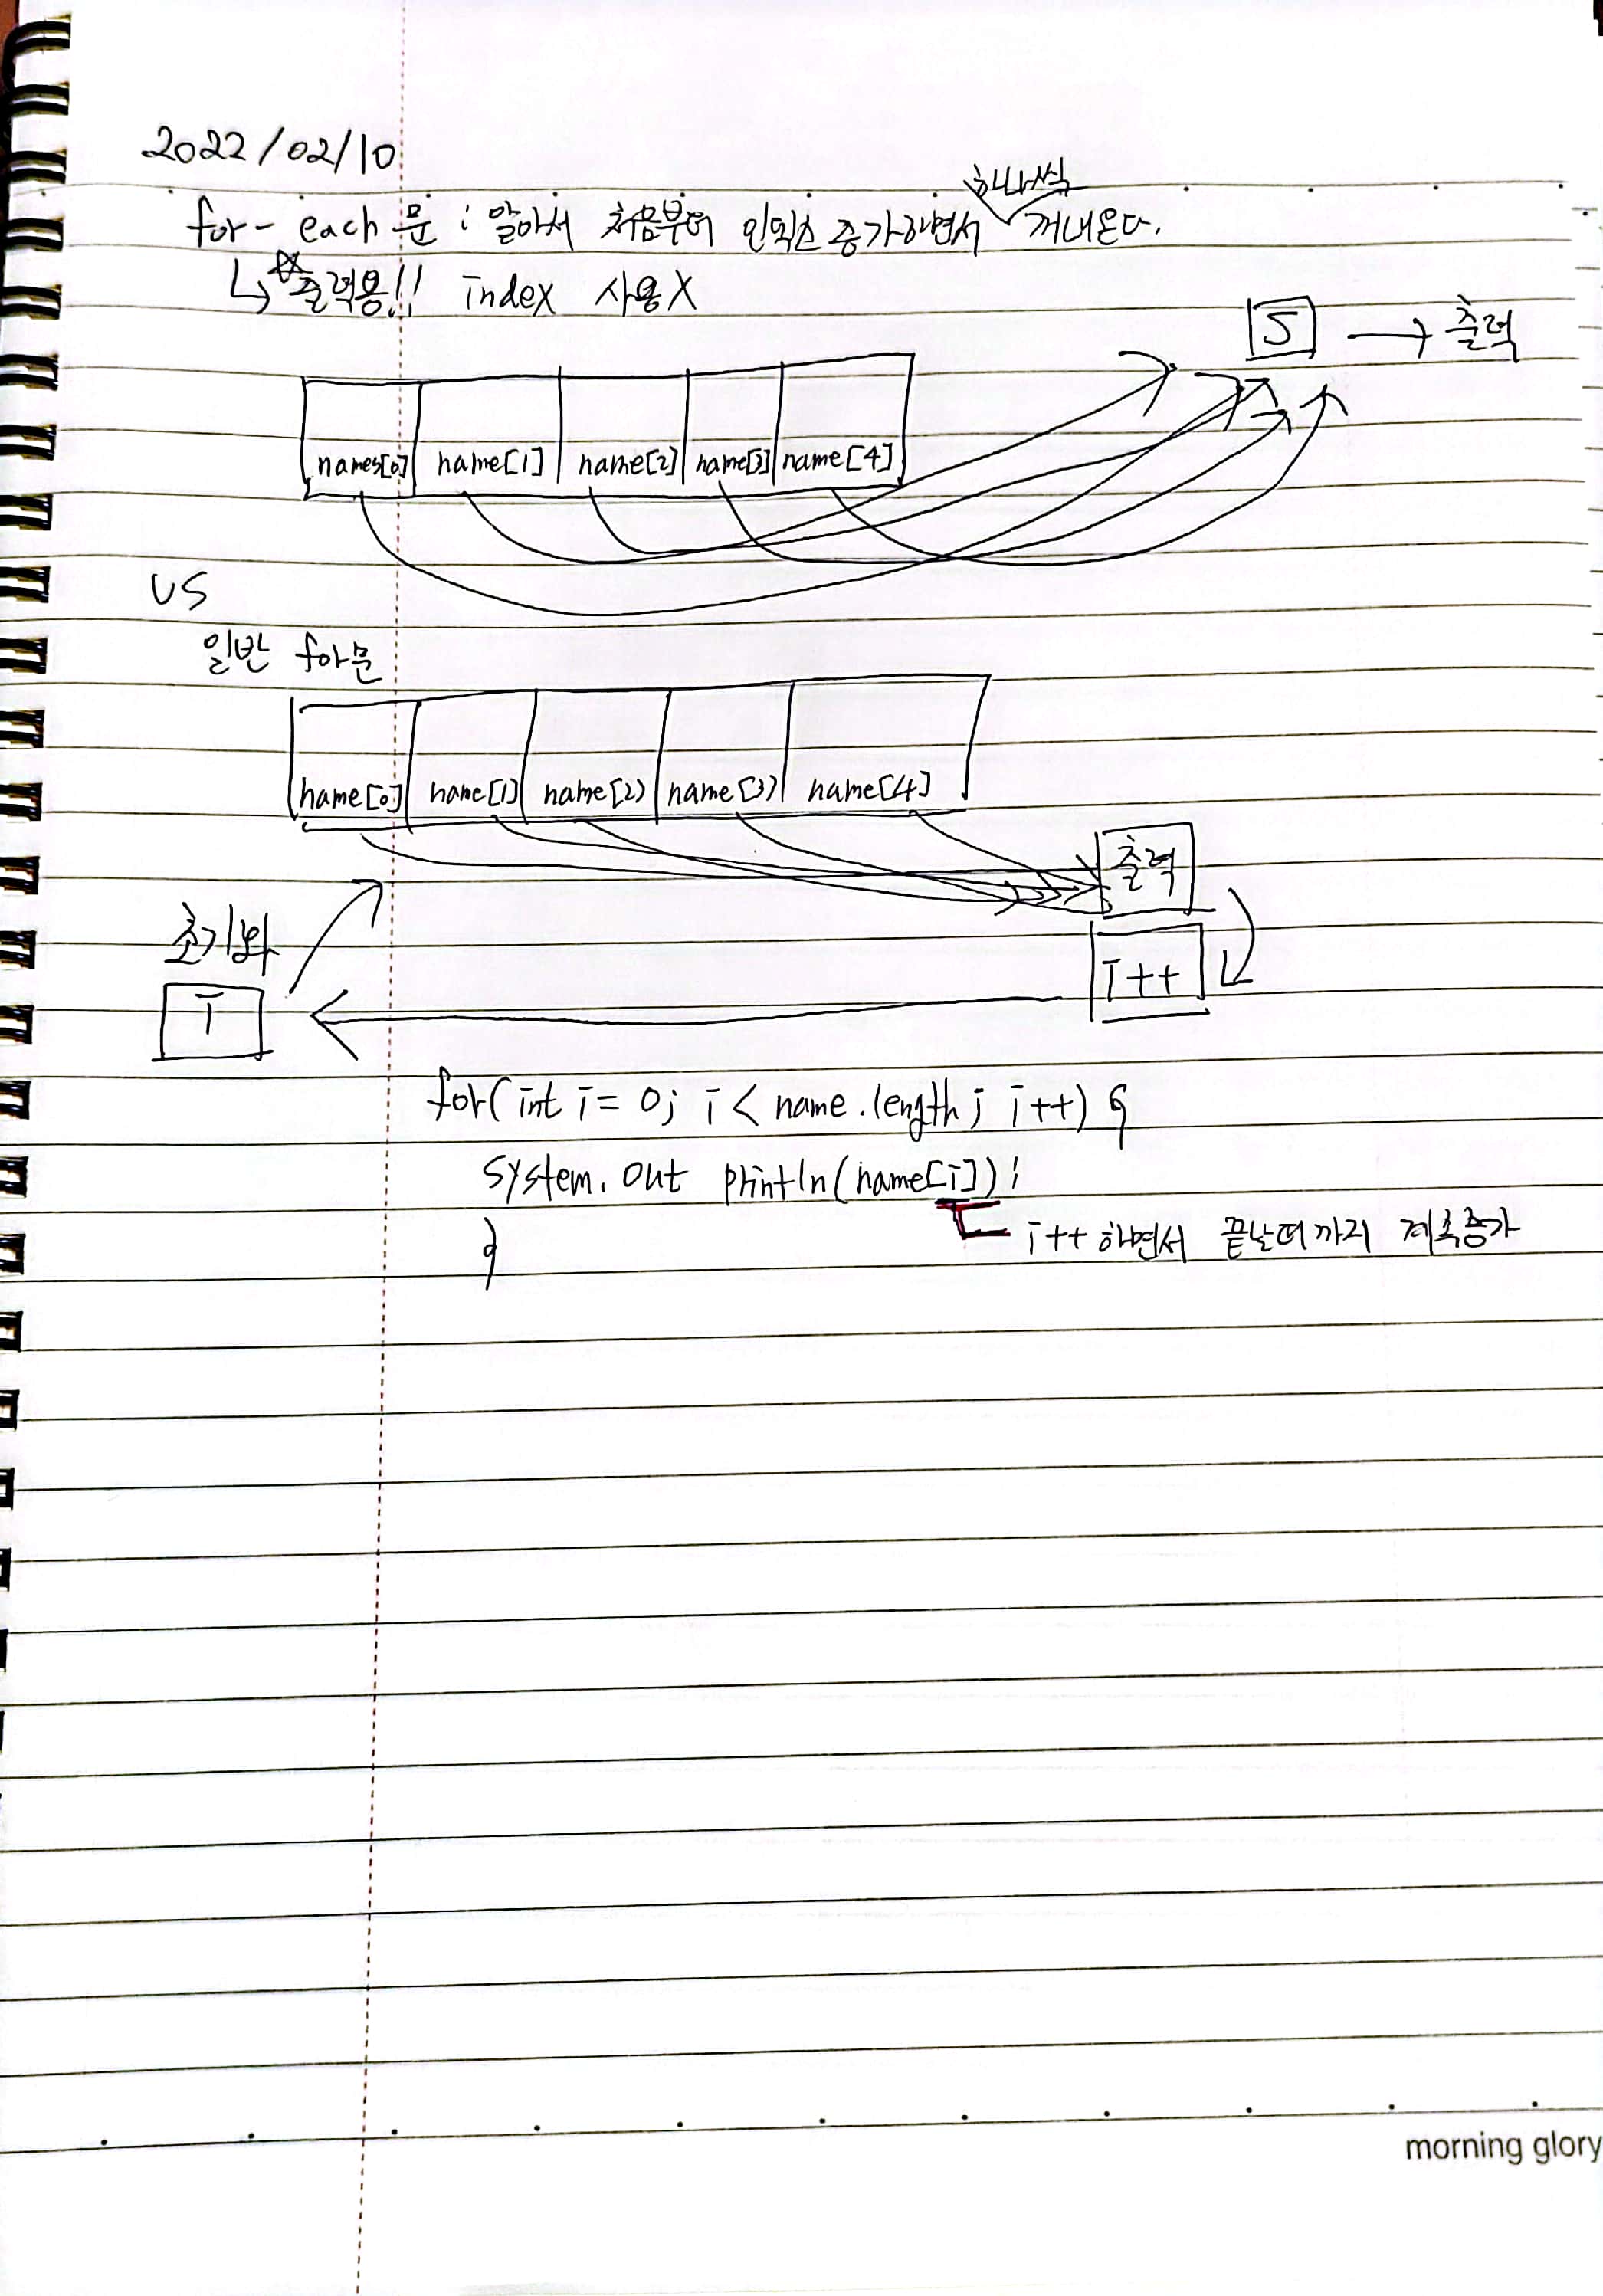 2022/02/10
하나씩
for-each문 : 알아서 처음부터 인덱스 증가하면서 꺼내온다.
↳ ☆출력용!! index 사용X
S → 출력
names[0] name[1] name[2] name[3] name[4]
VS
일반 for문
name[0] name[1] name[2) name[3) name[4]
출력
초기화
i++
i
for(int i = 0; i < name.length; i++) {
system.out println(name[i]);
i++ 하면서 끝날때까지 계속증가
}
morning glory